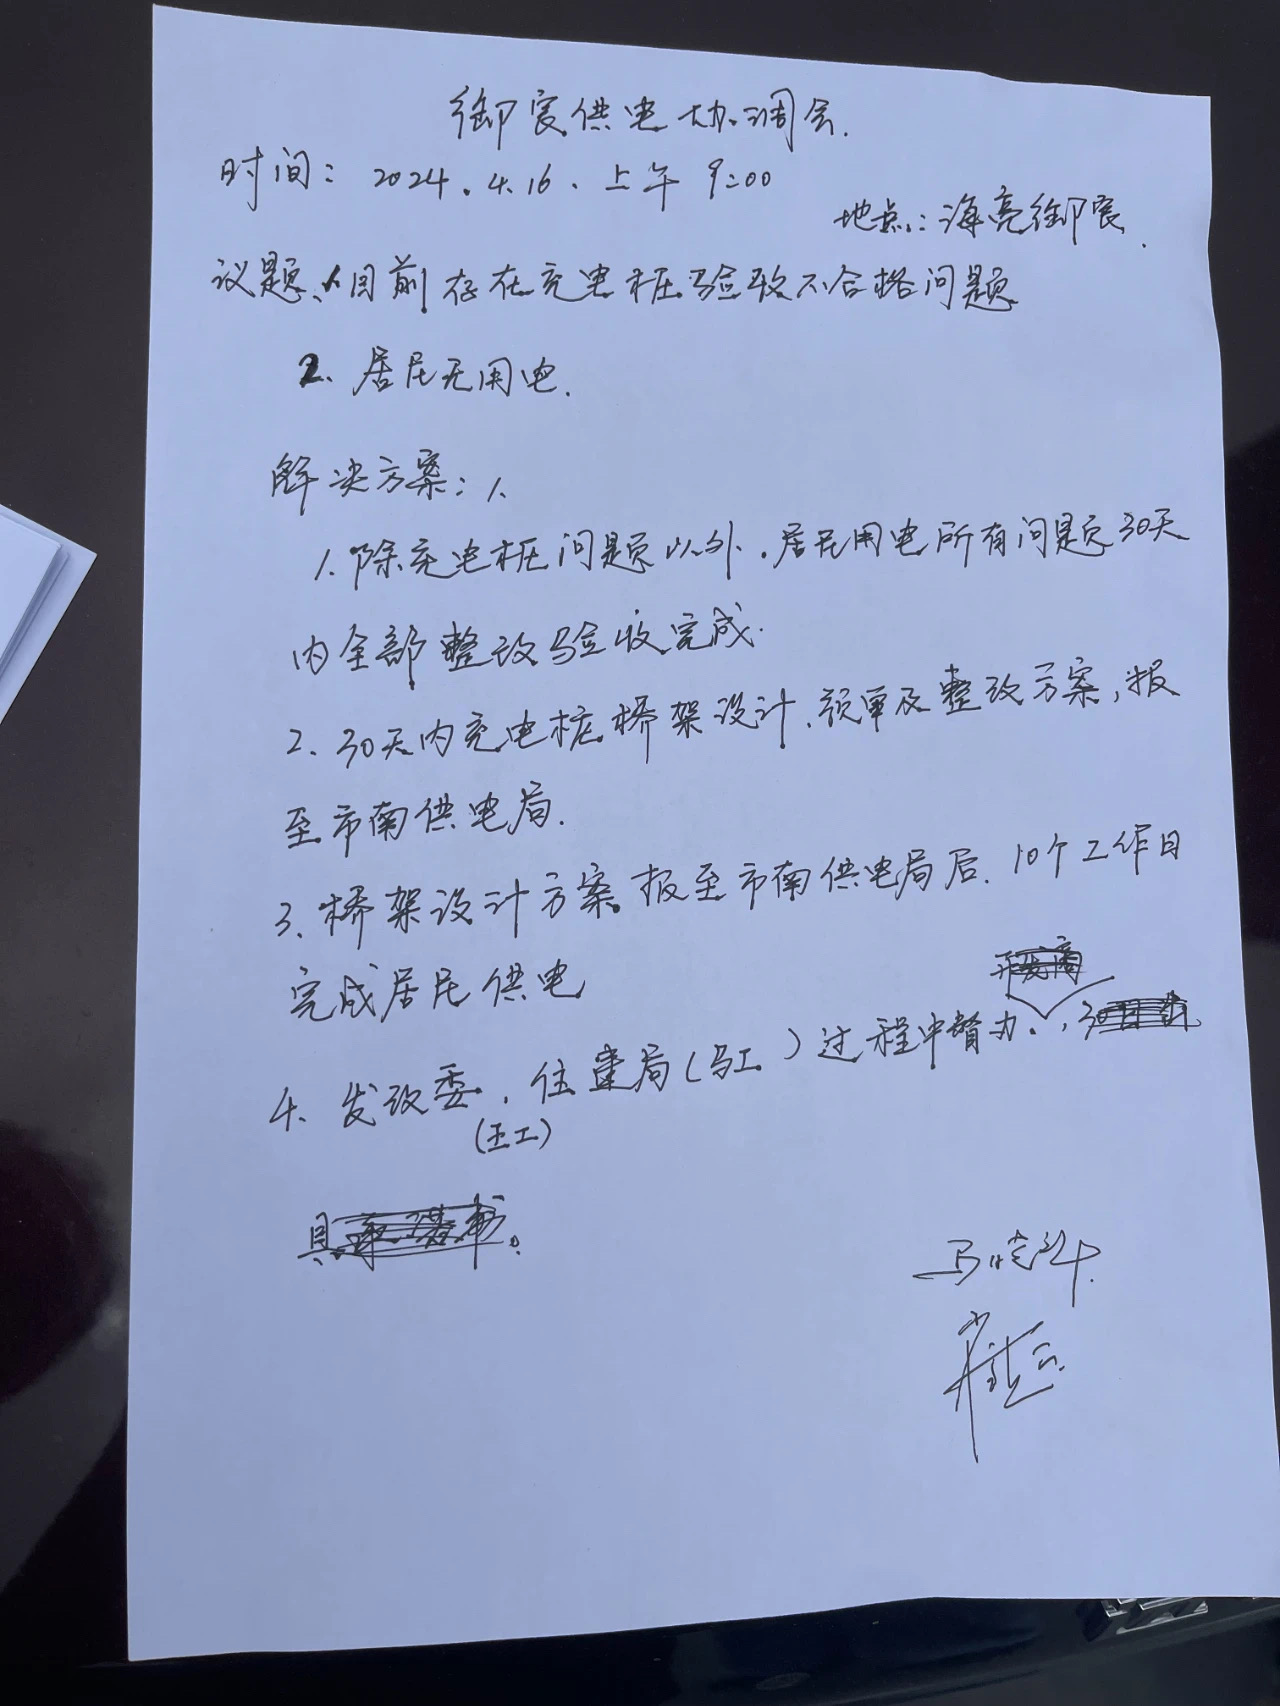 御宸供电协调会.
时间: 2024.4.16. 上午 9:00
地点: 海亮御宸.
议题: 1.目前存在充电桩验收不合格问题
2. 居民无用电.
解决方案: 1.
1. 除充电桩问题以外,居民用电所有问题30天
内全部整改验收完成.
2. 30天内充电桩桥架设计、预审及整改方案,报
至市南供电局.
3. 桥架设计方案报至市南供电局后. 10个工作日
完成居民供电
开发商
4. 发改委, 住建局(马工)过程中督办., 30
(王工)
具